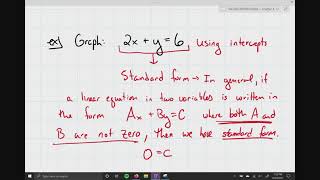 ex) Graph: 2x + y = 6 using intercepts
Standard form → In general, if
a linear equation in two variables is written in
the form Ax + By = C where both A and
B are not zero, then we have standard form.
0 = C